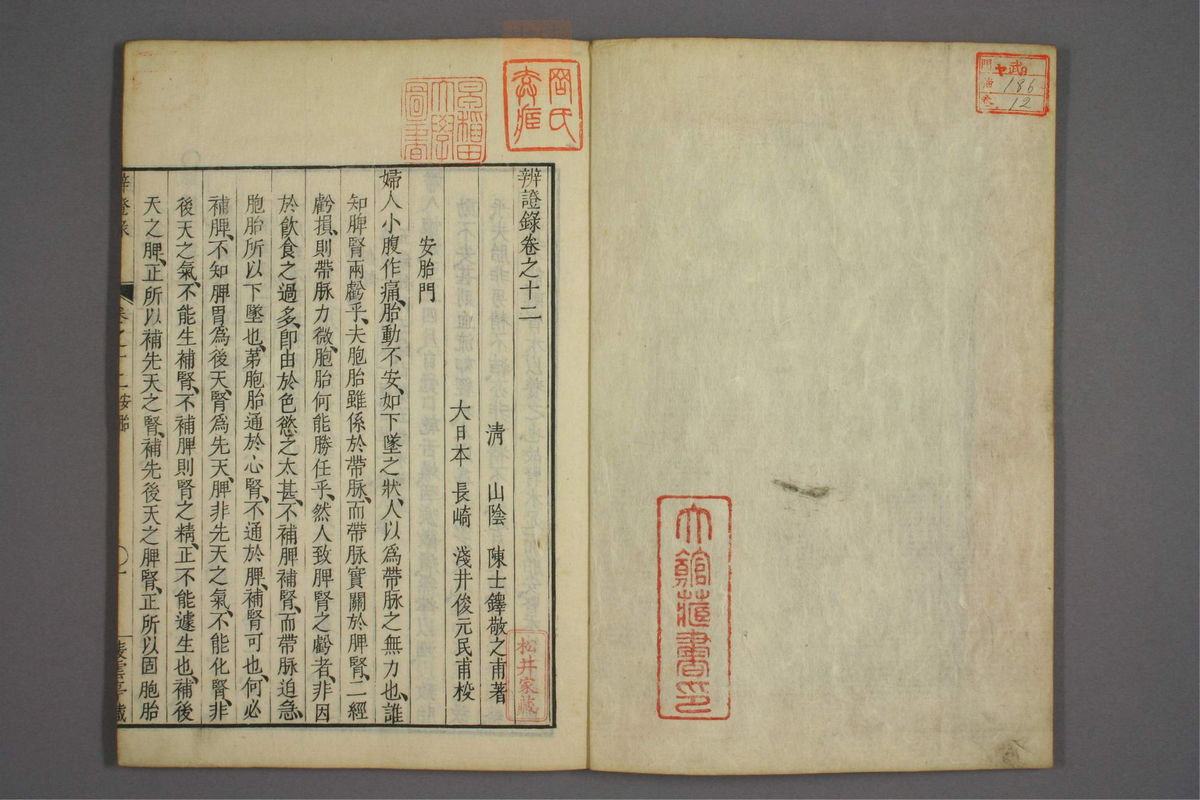 辨證錄卷之十二
清 山陰 陳士鐸敬之甫著
大日本 長崎 淺井俊元民甫校
安胎門
婦人小腹作痛、胎動不安、如下墜之狀、人以爲帶脉之無力也、誰
知脾腎兩虧乎、夫胞胎雖係於帶脉、而帶脉實關於脾腎、二經
虧損、則帶脉力微、胞胎何能勝任乎、然人致脾腎之虧者、非因
於飮食之過多、卽由於色慾之太甚、不補脾補腎、而帶脉迫急、
胞胎所以下墜也、第胞胎通於心腎、不通於脾、補腎可也、何必
補脾、不知脾胃爲後天、腎爲先天、脾非先天之氣、不能化腎、非
後天之氣、不能生補腎、不補脾則腎之精、正不能遽生也、補後
天之脾、正所以補先天之腎、補先後天之脾腎、正所以固胞胎
辨證錄
卷之十二安胎
〇一
淩雲亭藏
松井家藏
大館藏書印
早稻田
大學
圖書
186
12